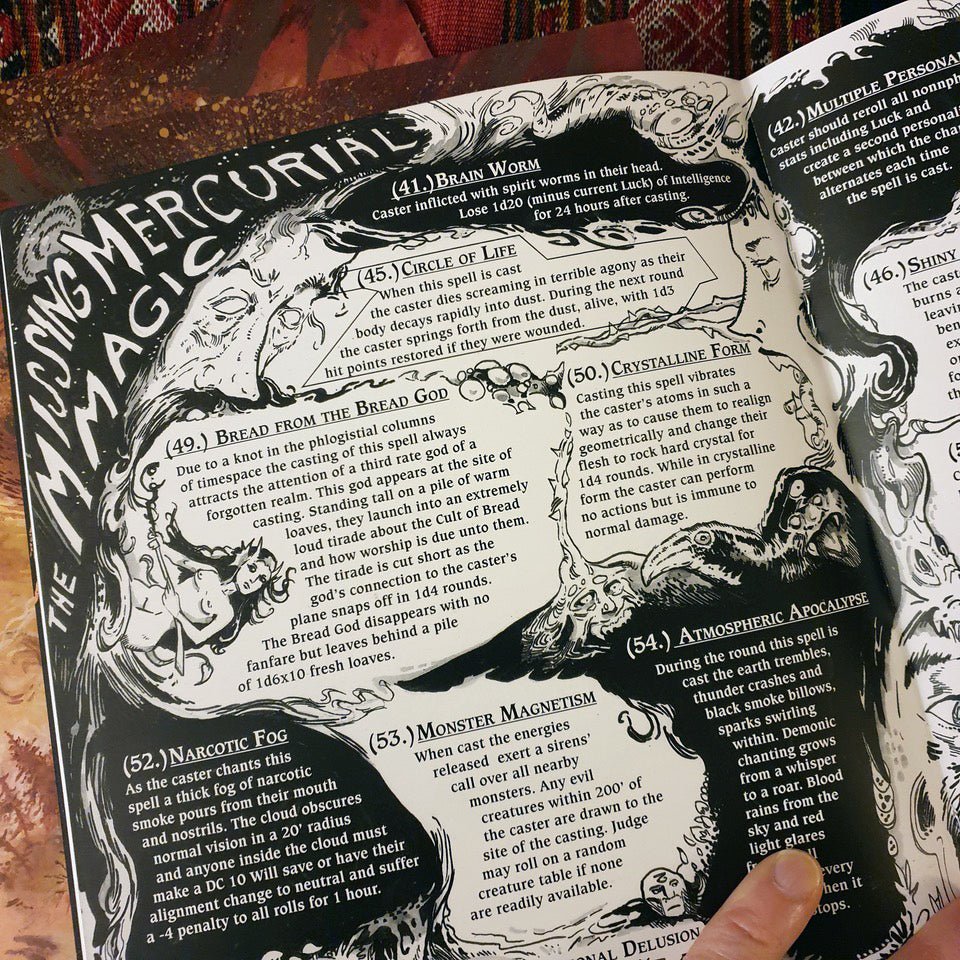 THE MISSING MERCURIAL MAGIC
(41.) BRAIN WORM
Caster inflicted with spirit worms in their head.
Lose 1d20 (minus current Luck) of Intelligence
for 24 hours after casting.
(45.) CIRCLE OF LIFE
When this spell is cast
the caster dies screaming in terrible agony as their
body decays rapidly into dust. During the next round
the caster springs forth from the dust, alive, with 1d3
hit points restored if they were wounded.
(49.) BREAD FROM THE BREAD GOD
Due to a knot in the phlogistial columns
of timespace the casting of this spell always
attracts the attention of a third rate god of a
forgotten realm. This god appears at the site of
casting. Standing tall on a pile of warm
loaves, they launch into an extremely
loud tirade about the Cult of Bread
and how worship is due unto them.
The tirade is cut short as the
god's connection to the caster's
plane snaps off in 1d4 rounds.
The Bread God disappears with no
fanfare but leaves behind a pile
of 1d6x10 fresh loaves.
(50.) CRYSTALLINE FORM
Casting this spell vibrates
the caster's atoms in such a
way as to cause them to realign
geometrically and change their
flesh to rock hard crystal for
1d4 rounds. While in crystalline
form the caster can perform
no actions but is immune to
normal damage.
(52.) NARCOTIC FOG
As the caster chants this
spell a thick fog of narcotic
smoke pours from their mouth
and nostrils. The cloud obscures
normal vision in a 20' radius
and anyone inside the cloud must
make a DC 10 Will save or have their
alignment change to neutral and suffer
a -4 penalty to all rolls for 1 hour.
(53.) MONSTER MAGNETISM
When cast the energies
released exert a sirens'
call over all nearby
monsters. Any evil
creatures within 200' of
the caster are drawn to the
site of the casting. Judge
may roll on a random
creature table if none
are readily available.
(54.) ATMOSPHERIC APOCALYPSE
During the round this spell is
cast the earth trembles,
thunder crashes and
black smoke billows,
sparks swirling
within. Demonic
chanting grows
from a whisper
to a roar. Blood
rains from the
sky and red
light glares
DELUSION
(42.) MULTIPLE
Caster should reroll all
stats including Luck and
create a second
between which the
alternates each time
the spell is cast.
(46.) SHINY
The
burns